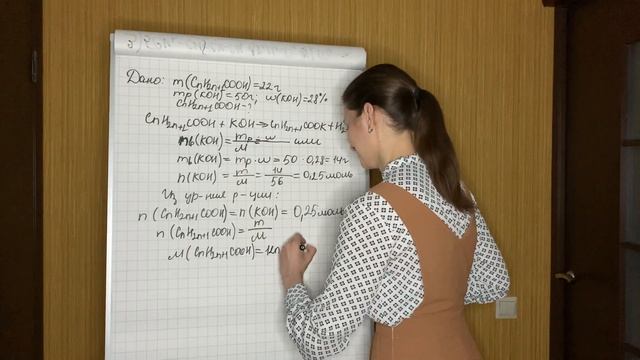 Дано: m(CnH2n+1COOH)=22г
mр(KOH)=50г; w(KOH)=28%
CnH2n+1COOH-?
CnH2n+1COOH + KOH → CnH2n+1COOK + H2
mв(KOH)=
mв(KOH)= mр·w = 50·0,28=14г
n(KOH)= m/M = 14/56 = 0,25моль
Из ур-ния р-ции:
n(CnH2n+1COOH)=n(KOH)= 0,25моль
n(CnH2n+1COOH)= m/M
M(CnH2n+1COOH)=